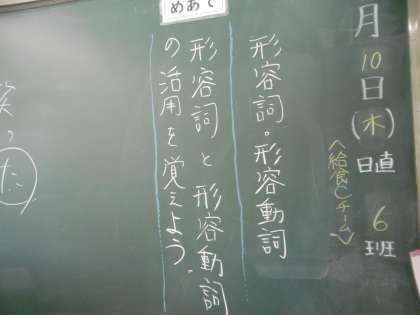 月10日(木)日直 6班
〈給食Cチーム〉
形容詞・形容動詞
めあて
形容詞と形容動詞
の活用を覚えよう。
った